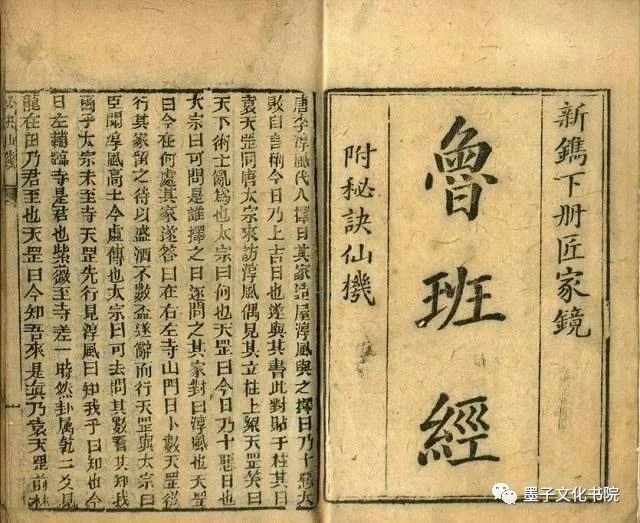 新鐫下册匠家鏡
魯班經
附秘訣仙機
唐李淳風代人擇日其家造屋淳風與之擇日乃十惡大
敗自稱今日乃上吉日也遂與其書此對貼于柱其日
袁天罡同唐太宗來訪淳風偶見其立柱上梁天罡笑曰
天下術士亂爲也太宗曰何也天罡曰今日乃十惡日也
太宗曰可問是誰擇之日遂問之其家對曰淳風也天罡
曰今在何處其家遂答曰在右左寺山門日卜數天罡從
行其家留之待以盛酒不數盃遂辭而行天罡與太宗曰
臣聞淳風高士今虛傳也太宗曰可去問其數看其知
乎太宗未至寺天罡先行見淳風曰知我乎曰知也今
日左輔臨寺是君也紫薇至寺差一時然卦属乾二爻見
龍在田乃君至也天罡曰今知吾來是真乃袁天罡
墨子文化书院